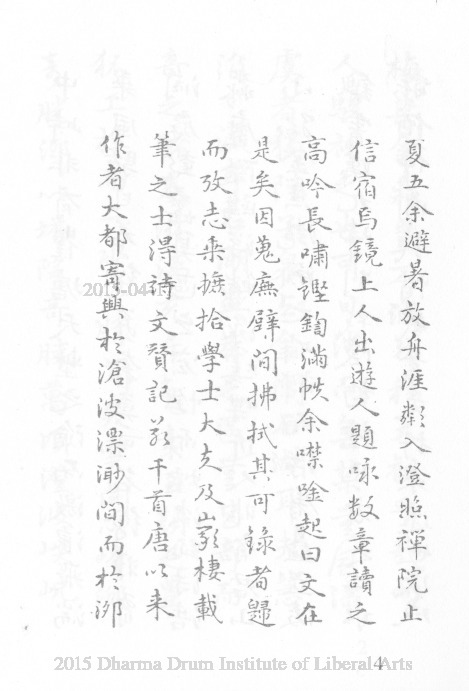 夏五余避暑放舟涯粼入澄照禪院止
信宿焉鏡上人出遊人題咏数章讀之
高吟長嘯鏗鍧滿帙余噤唫起曰文在
是矣因蒐廡壁間拂拭其可錄者歸
而攷志乘摭拾學士大夫及巖棲載
筆之士得詩文贊記若干首唐以来
作者大都寄興於滄波漂渺間而於鄉
2015 Dharma Drum Institute of Liberal Arts
4